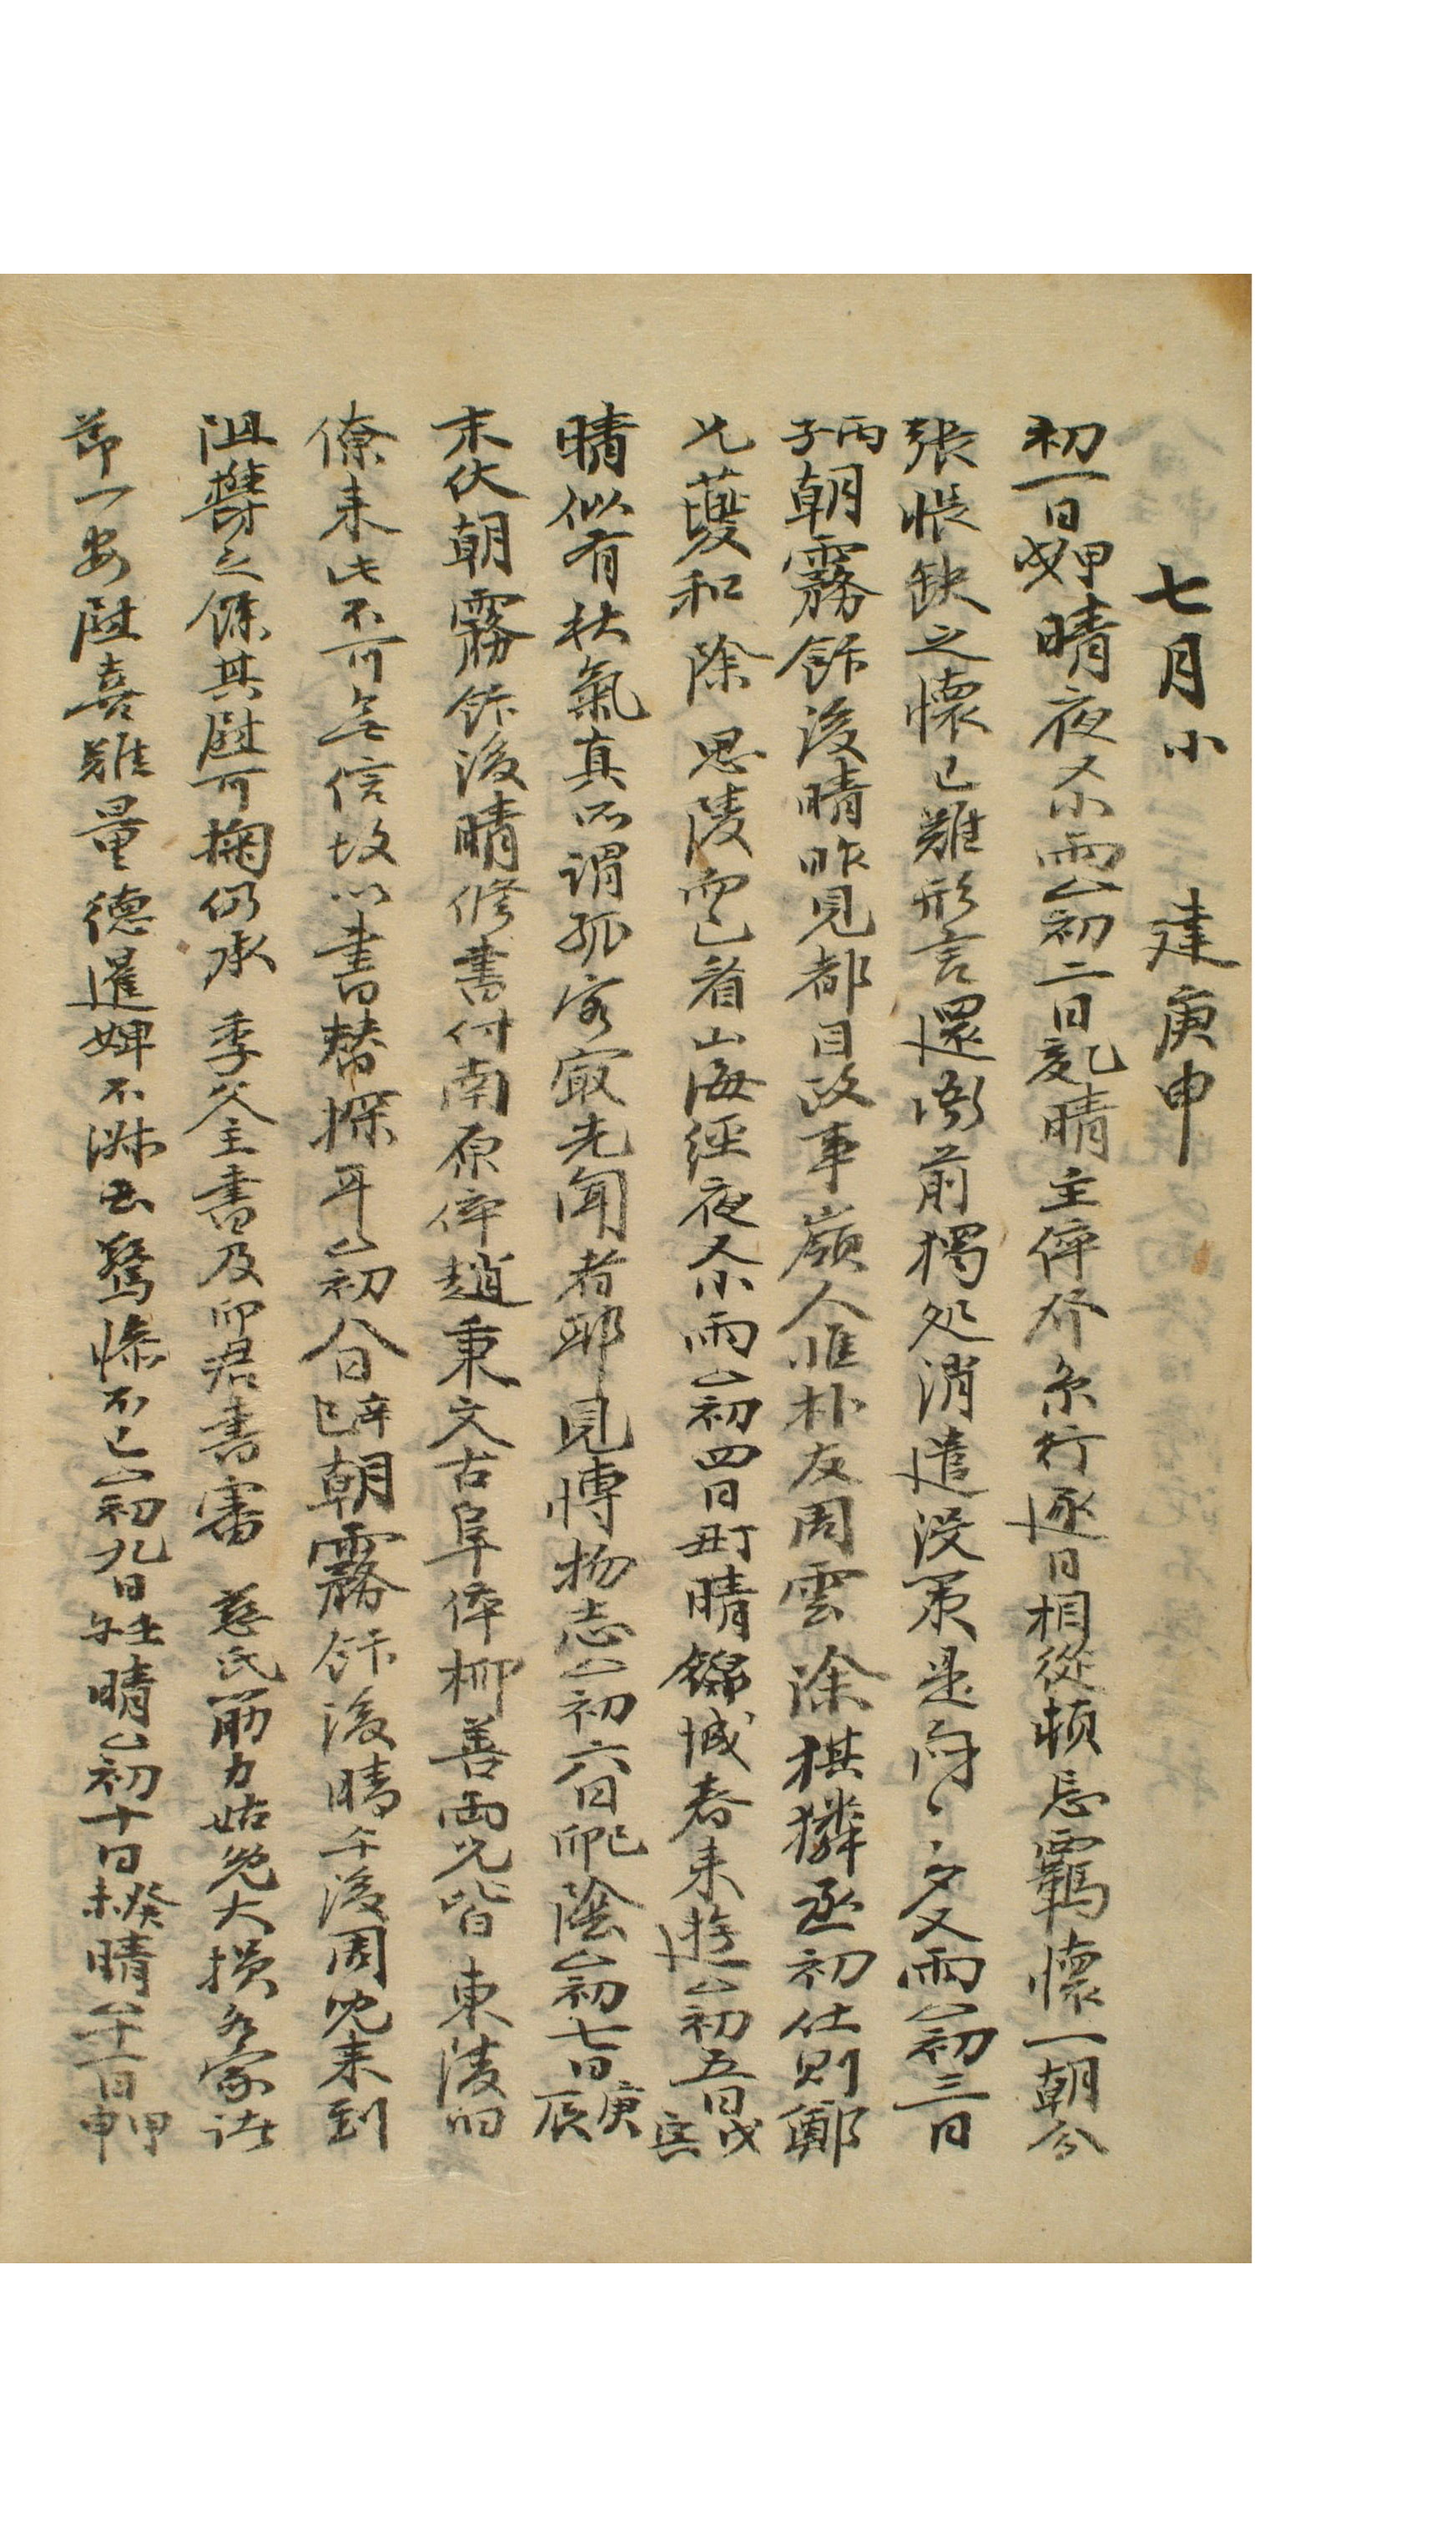 七月小 建庚申
初一日甲戌晴夜小雨△初二日乙亥晴主倅作京行逐日相從頓忘羈懷一朝分
張悵缺之懷已難形言還衙前獨処消遣没策是向〻夕又雨△初三日
丙子朝霧飯後晴昨見都目政事嶺人惟朴友周雲除祺㷠丞初仕則鄭
兄夔和除 思陵而已看山海經夜小雨△初四日丁丑晴錦城春来遊△初五日戊寅
晴似有秋氣真所謂孤客最先聞者耶見博物志△初六日己卯陰△初七日庚辰
末伏朝霧飯後晴修書付南原倅趙秉文古阜倅柳善兩兄皆東陵旧
僚来此不可無信故以書替探耳△初八日辛巳朝霧飯後晴午後周兄来到
阻欝之餘其慰可掬仍承 季父主書及卯君書審 慈氏筋力姑免大損各家諸
節一安慰喜難量德暹婢不淑云驚慘不已△初九日壬午晴△初十日癸未晴△十一日甲申